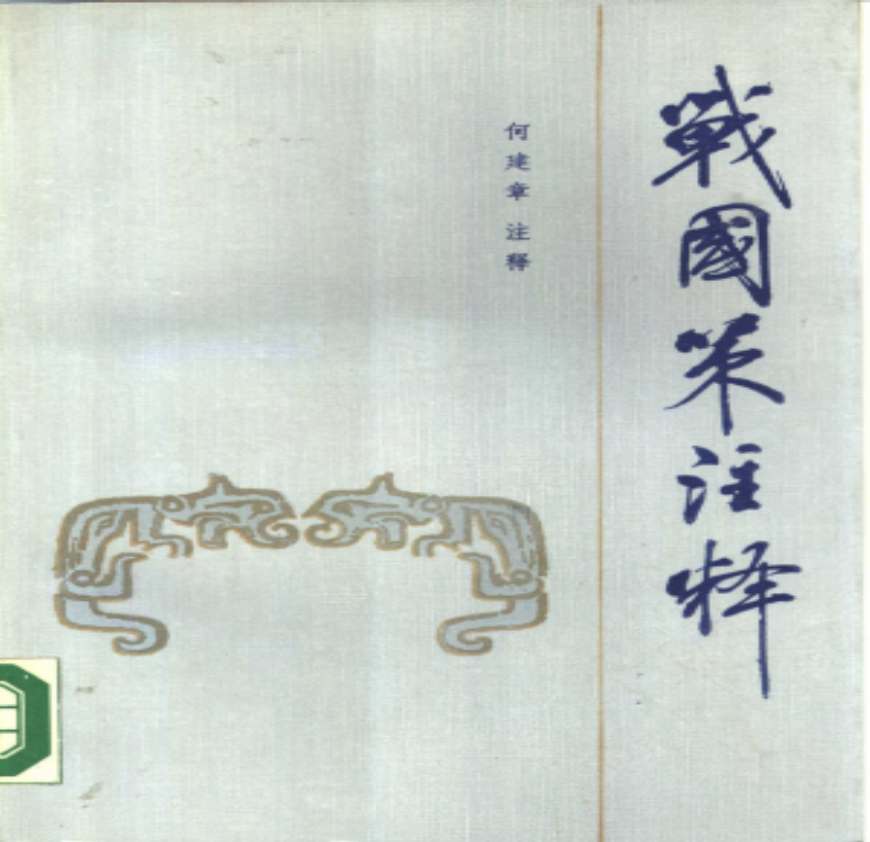 戰國策注釋
何建章 注釋